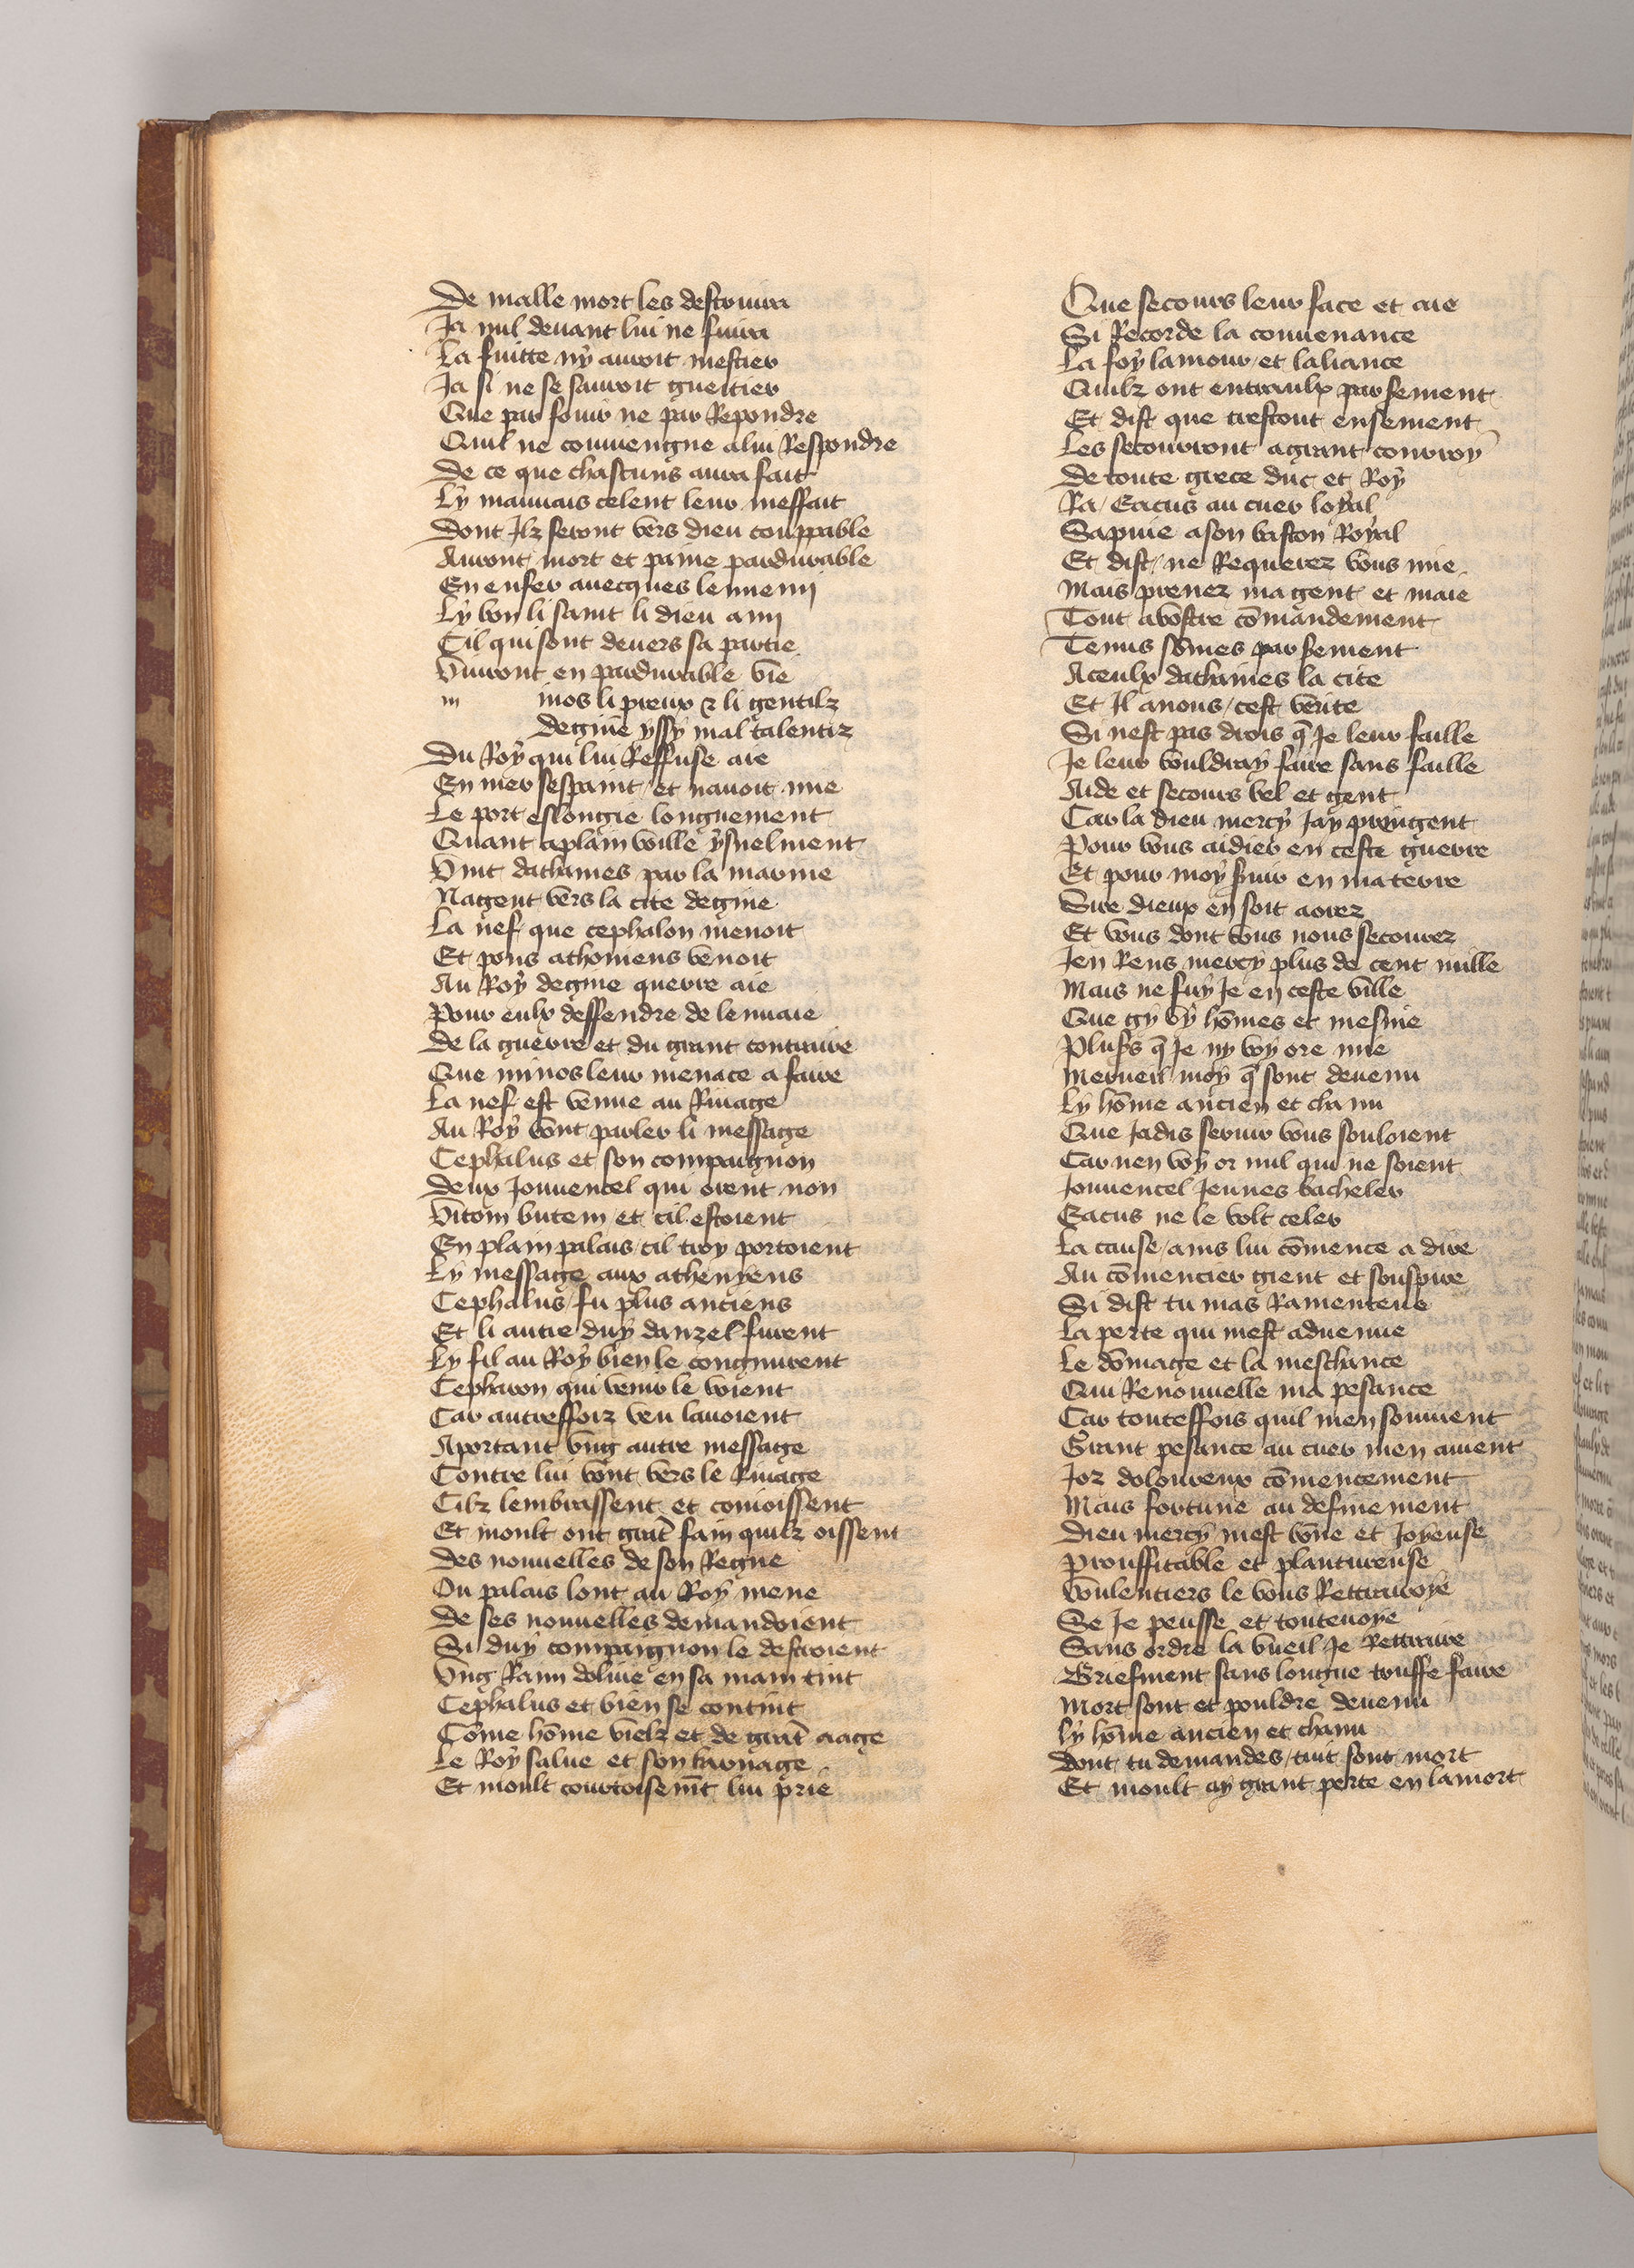 De malle mort les destruira
Ja nul deuant lui ne fuira
La fuitte ny auroit mestier
Ja si ne se sauroit gueitier
Que par fouir ne par Repondre
Quil ne conuiengne a lui Respondre
De ce que chascuns aura fait
Ly mauuais celent leur meffait
Dont Ilz seront vers dieu couppable
Auront mort et paine pardurable
En enfer auecques lennemj
Ly bon li saint li dieu amj
Cil qui sont deuers sa partie
Viuront en pardurable vie
m inos li preux & li gentilz
Degine yssy mal talentiz
Du Roy qui lui Reffuse aie
En mer sespaint et nauoit mie
Le port eslongie longuement
Quant a plain voille ysnelment
Vint dathaines par la marine
Nagent vers la cite degine
La nef que cephalon menoit
Et pour atheniens venoit
Au Roy degine querre aie
Pour eulx deffendre de lenuaie
De la guerre et du grant contraire
Que minos leur menace a faire
La nef est venue au Riuage
Au Roy vont parler li message
Cephalus et son compaignon
Deux Jouuencel qui orent non
Vitoin butem et cil estoient
En plain palais cil troy portoient
Ly message aux athenyens
Cephalus fu plus anciens
Et li autre duy danzel furent
Ly fil au Roy bien le congnurent
Cepharon qui venir le voient
Car autreffoiz veu lauoient
Aportant vng autre message
Contre lui vont vers le Riuage
Cilz lembrassent et conioissent
Et moult ont grāt fain quilz oissent
Des nouuelles de son Regne
Ou palais lont au Roy mene
De ses nouuelles demandoient
Si duy compaignon le destroient
Vng Raim doliue en sa main tint
Cephalus et bien se contint
Cōme hōme vielz et de grāt aage
Le Roy salue et son barnage
Et moult courtoisemēt lui prie
Que secours leur face et aie
Si Recorde la conuenance
La foy lamour et laliance
Quilz ont entraulx par serment
Et dist que trestout ensement
Les secourront a grant conroy
De toute grece duc et Roy
Ra Eacus au cuer loyal
Sapuie a son baston Royal
Et dist ne Requerez vous mie
Mais prenez ma gent et maie
Tout a vostre cōmandement
Tenus sōmes par serment
A ceulx dathaines la cite
Et Il a nous cest verite
Si nest pas drois q̄ Je leur faille
Je leur vouldray faire sans faille
Aide et secours bel et gent
Car la dieu mercy Jay prou gent
Pour vous aidier en ceste guerre
Et pour moy seruir en ma terre
Sire dieux en soit aorez
Et vous dont vous nous secourez
Jen Rens mercy plus de cent mille
Mais ne fuy Je en ceste ville
Que gy vy hōmes et mesnie
Plusrs q̄ Je ny voy ore mie
Merueil moy q̄ sont deuenu
Ly hōme ancien et chanu
Que Jadis seruir vous souloient
Car nen voy or nul qui ne soient
Jouuencel Jeunes bacheler
Eacus ne le volt celer
La cause ains lui cōmence a dire
Au cōmencier gient et souspire
Si dist tu mas Ramenteue
La perte qui mest aduenue
Le dōmage et la meschance
Qui Renouuelle ma pesance
Car touteffois quil men souuient
Grant pesance au cuer men auient
Joz doloureux cōmencement
Mais fortune au definement
Dieu mercy mest bōne et Joyeuse
Prouffitable et plantureuse
Voulentiers le vous Rettrairoye
Se Je peusse et touteuoye
Sans ordre la vueil Je Rettraire
Briefment sans longue truffe faire
Mort sont et pouldre deuenu
Ly hōme ancien et chanu
Dont tu demandes tuit sont mort
Et moult ay grant perte en la mort